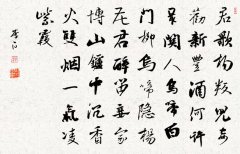 君歌楊叛兒妾
勸新豐酒何許
最關人烏啼白
門柳烏啼隱楊
花君醉留妾家
博山爐中沉香
火雙烟一氣凌
紫霞
李白